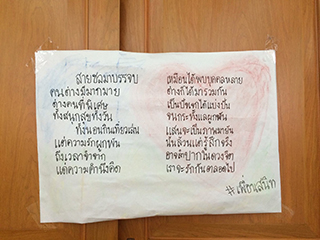 สายชลมาบรรจบ เหมือนได้พบบุคคลหลาย
คนต่างมีมากมาย ต่างก็ได้มารวมกัน
ต่างคนที่พิเศษ เป็นปัจเจกได้แบ่งปัน
ทั้งสนุกสุขทั้งวัน จนกระทั่งแลผูกพัน
ทั้งนอนกินเที่ยวเล่น แสนจะเป็นภาพมายัน
แต่ความรักผูกพัน นั้นล้วนแต่รู้สึกจริง
ถึงเวลาจำจาก ปากในดวงจิต
แต่ความคำนึงคิด เราจะรักกันตลอดไป
#เพื่อนสนิท